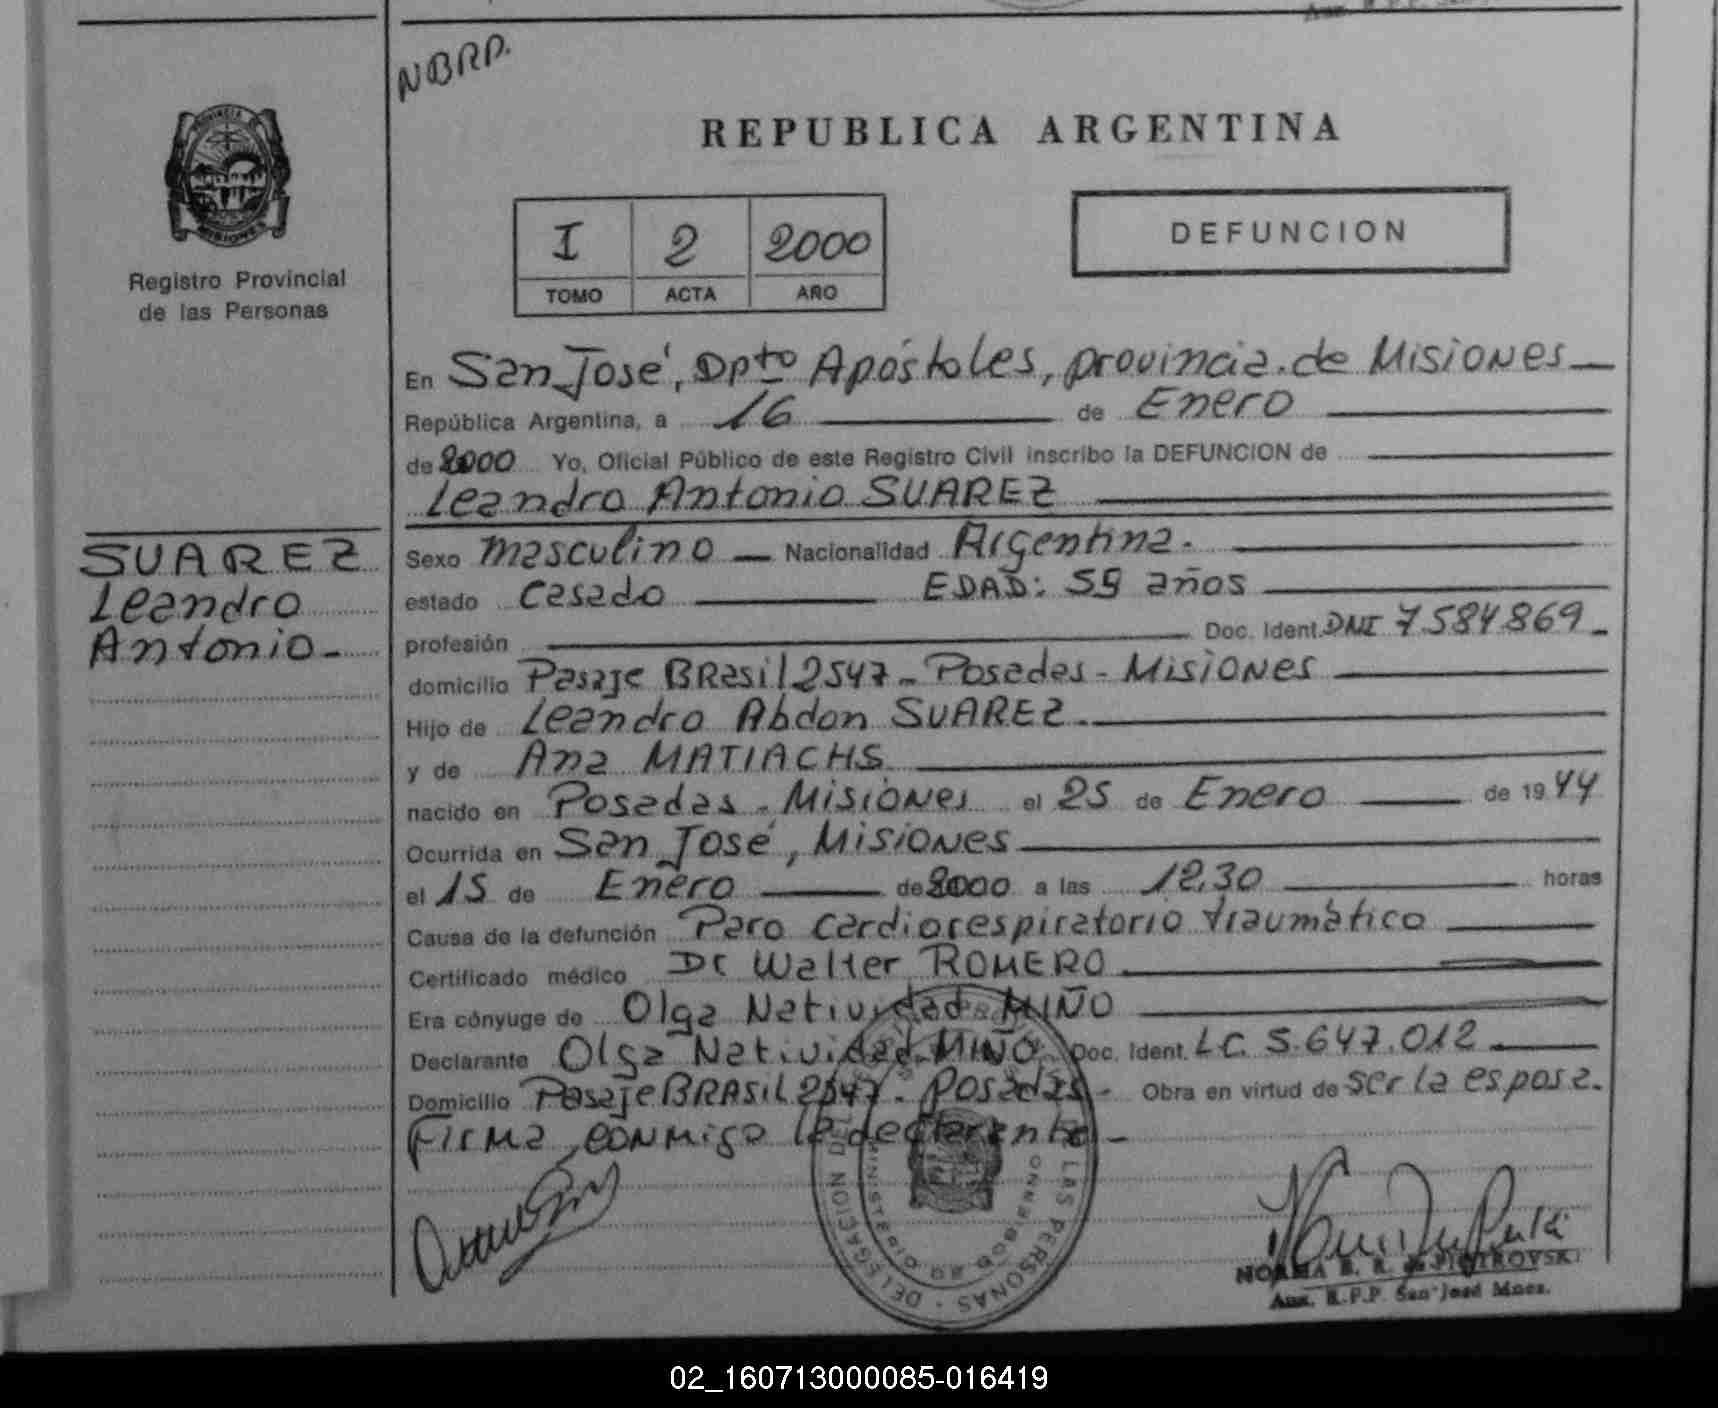 NBRP.
PROVINCIA DE
MISIONES
Registro Provincial
de las Personas
SUAREZ
Leandro
Antonio-
REPUBLICA ARGENTINA
I 2 2000
TOMO ACTA AÑO
DEFUNCION
En San José, Dpto Apóstoles, provincia de Misiones
República Argentina, a 16 de Enero
de 2000 Yo, Oficial Público de este Registro Civil inscribo la DEFUNCION de
Leandro Antonio SUAREZ
Sexo masculino Nacionalidad Argentina.
estado casado EDAD: 55 años
profesión Doc. Ident. DNI 7584869
domicilio Pasaje BRasil 2547 - Posadas - Misiones
Hijo de Leandro Abdon SUAREZ.
y de Ana MATIACHS
nacido en Posadas - Misiones el 25 de Enero de 1944
Ocurrida en San José, Misiones
el 15 de Enero de 2000 a las 12,30 horas
Causa de la defunción Paro cardiorespiratorio traumático
Certificado médico Dr Walter ROMERO
Era cónyuge de Olga Natividad MIÑO
Declarante Olga Natividad MIÑO Doc. Ident. LC. 5.647.012
Domicilio Pasaje BRASIL 2547 - Posadas - Obra en virtud de ser la esposa.
Firma conmigo la declarante -
LAS PERSONAS - DELEGACION
MINISTERIO DE GOBIERNO
NORMA B. R. de PIOTROVSKI
Aux. R.P.P. San José Mnes.
02_160713000085-016419